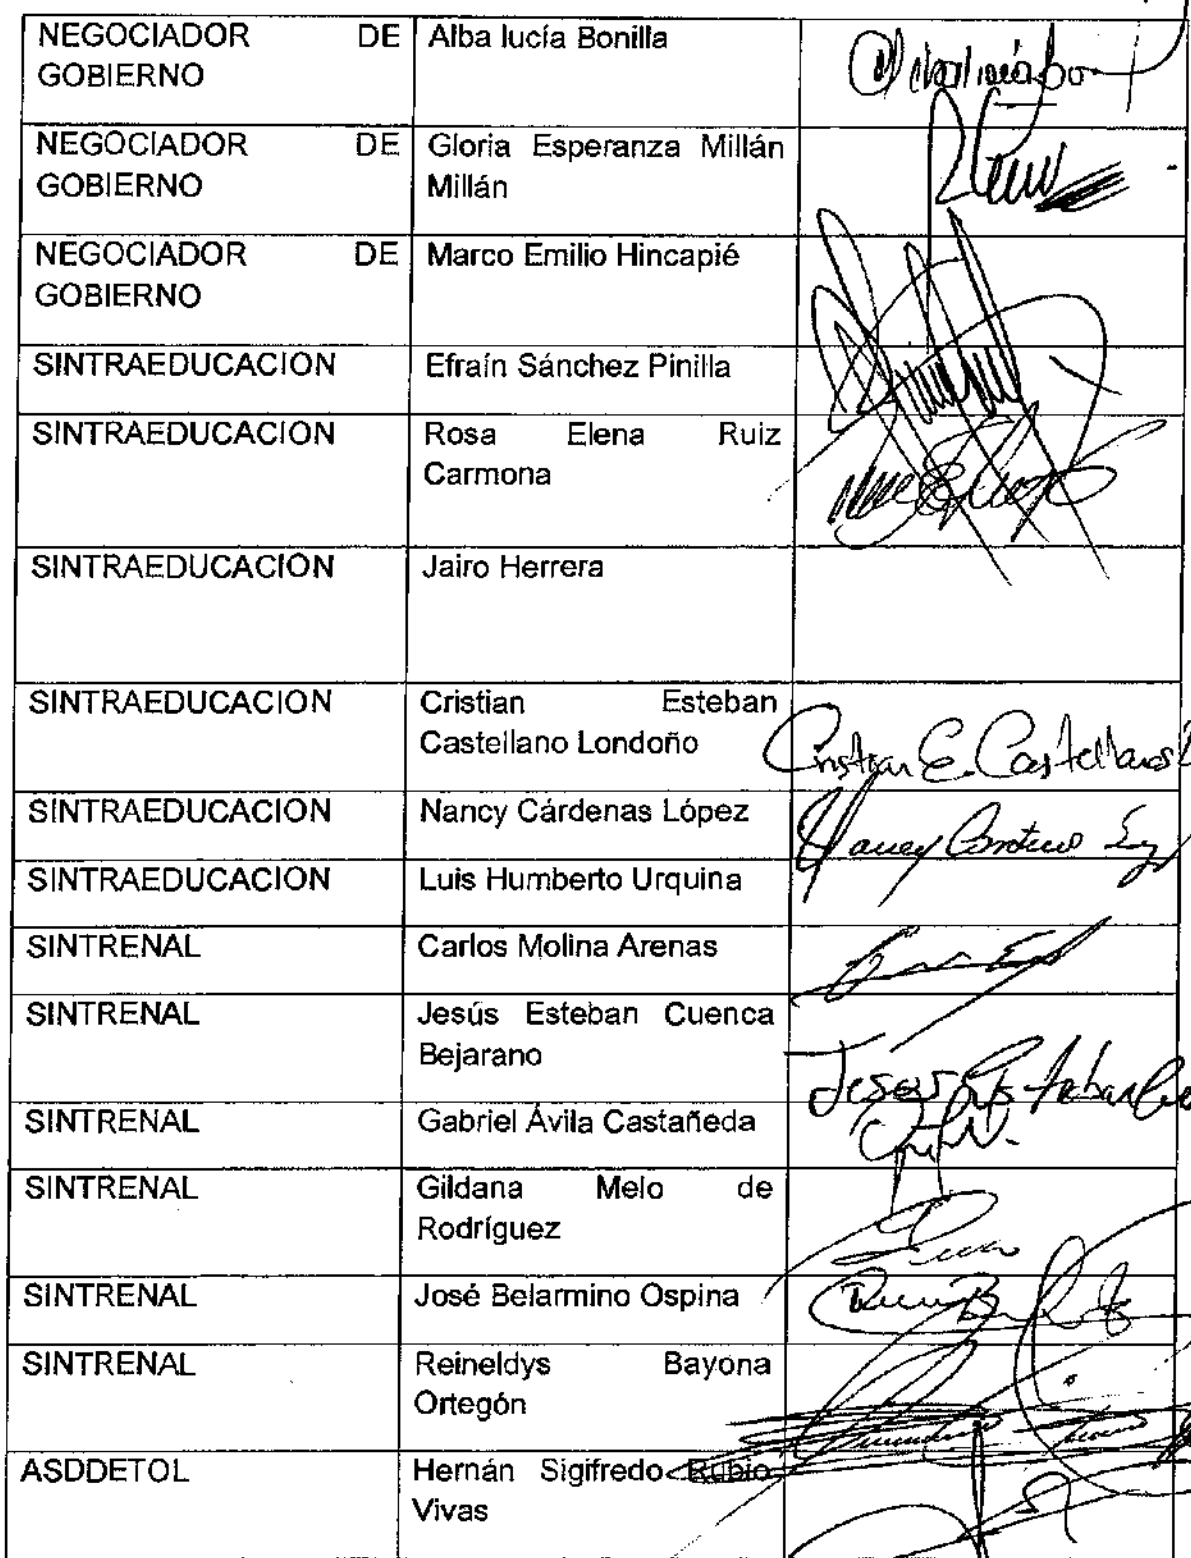 NEGOCIADOR DE
GOBIERNO
Alba lucía Bonilla
NEGOCIADOR DE
GOBIERNO
Gloria Esperanza Millán
Millán
NEGOCIADOR DE
GOBIERNO
Marco Emilio Hincapié
SINTRAEDUCACION
Efraín Sánchez Pinilla
SINTRAEDUCACION
Rosa Elena Ruiz
Carmona
SINTRAEDUCACION
Jairo Herrera
SINTRAEDUCACION
Cristian Esteban
Castellano Londoño
Cristian E. Castellanos
SINTRAEDUCACION
Nancy Cárdenas López
Nancy
SINTRAEDUCACION
Luis Humberto Urquina
SINTRENAL
Carlos Molina Arenas
SINTRENAL
Jesús Esteban Cuenca
Bejarano
Jesus Esteban
SINTRENAL
Gabriel Ávila Castañeda
SINTRENAL
Gildana Melo de
Rodríguez
SINTRENAL
José Belarmino Ospina
SINTRENAL
Reineldys Bayona
Ortegón
ASDDETOL
Hernán Sigifredo Rubio
Vivas